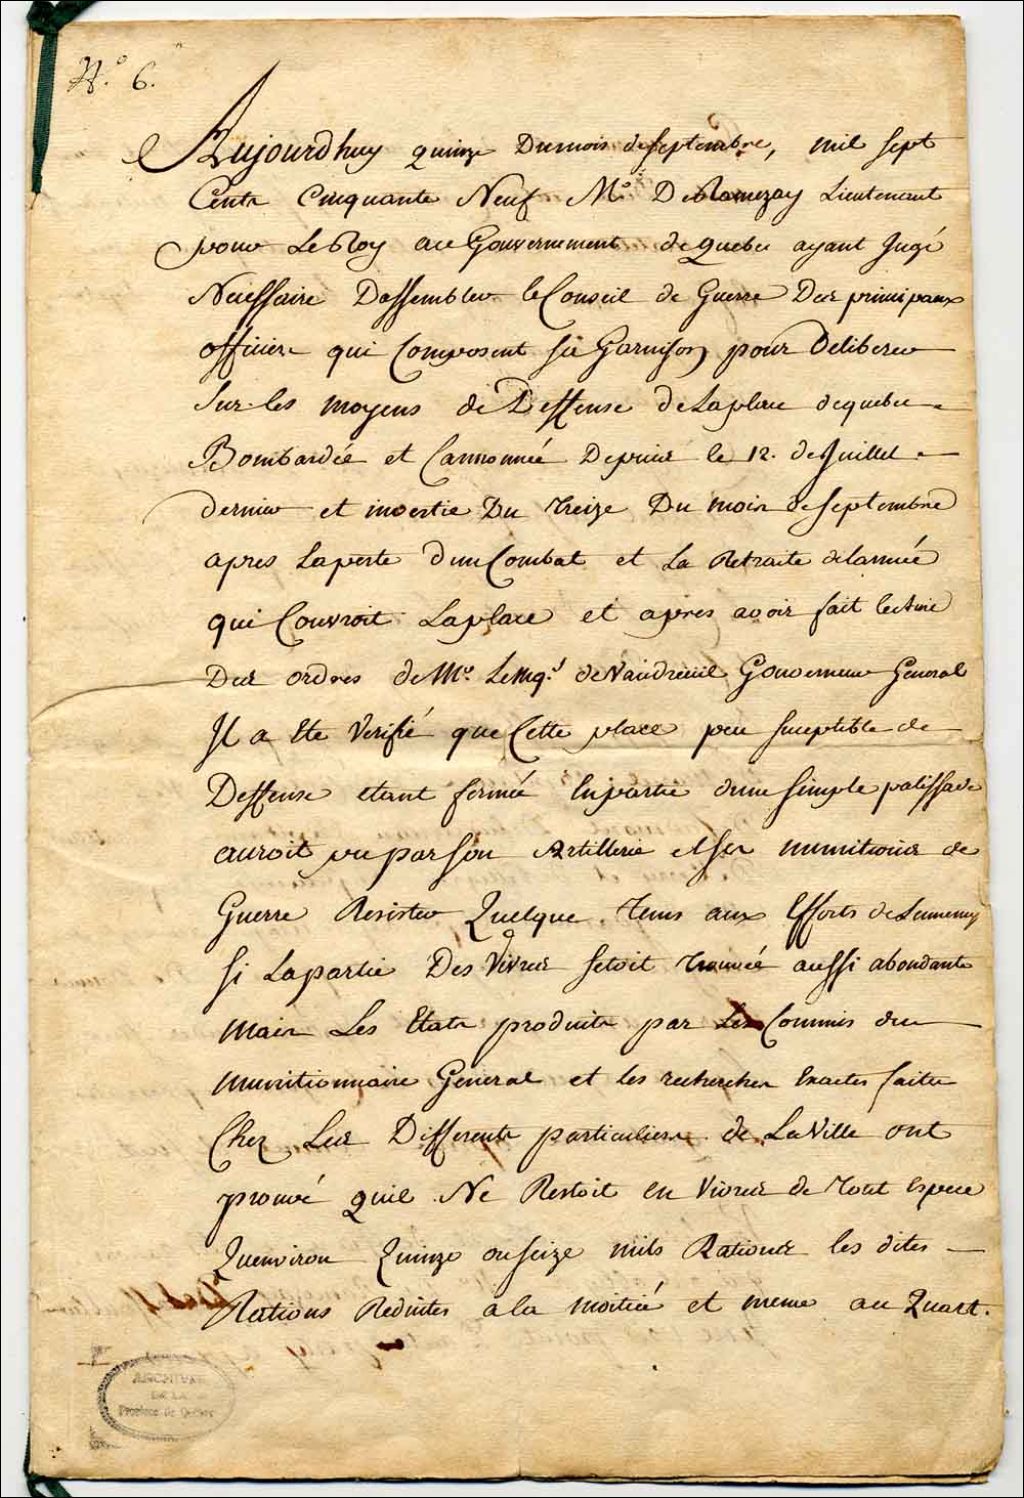 N.° 6.
Aujourdhuy quinze Du mois de septembre, mil sept
Cents Cinquante Neuf Mr. De Ramezay Lieutenant
pour Le Roy au Gouvernement de quebec ayant Jugé
Necessaire Dassembler le Conseil de Guerre Des principaux
officiers qui Composent sa Garnison pour Deliberer
Sur les moyens de Deffense de La place de quebec
Bombardée et Cannonnée Depuis le 12. de Juillet
dernier et investie Du treize Du mois de septembre
apres La perte d'un Combat et La Retraite de larmée
qui Couvroit La place et après avoir fait lecture
Des ordres de Mr. Le Mq.s de Vaudreuil Gouverneur General
Il a Ete Verifié que Cette place peu suceptible de
Deffense etant fermée En partie dune simple palissade
auroit pu par son Artillerie et ses munitions de
Guerre Resister Quelque tems aux Efforts de Lennemy
si La partie Des Vivres setoit trouvée aussi abondante
mais Les Etats produits par Les Commis du
munitionnaire General et les recherches Exactes faites
Chez Les Differents particuliers de La Ville ont
prouvé quil Ne Restoit en Vivres de Tout Espece
Quenviron Quinze ou seize mils Rations les dites
Rations Reduites a la moitié et meme au Quart.
ARCHIVES
DE LA
Province de Québec